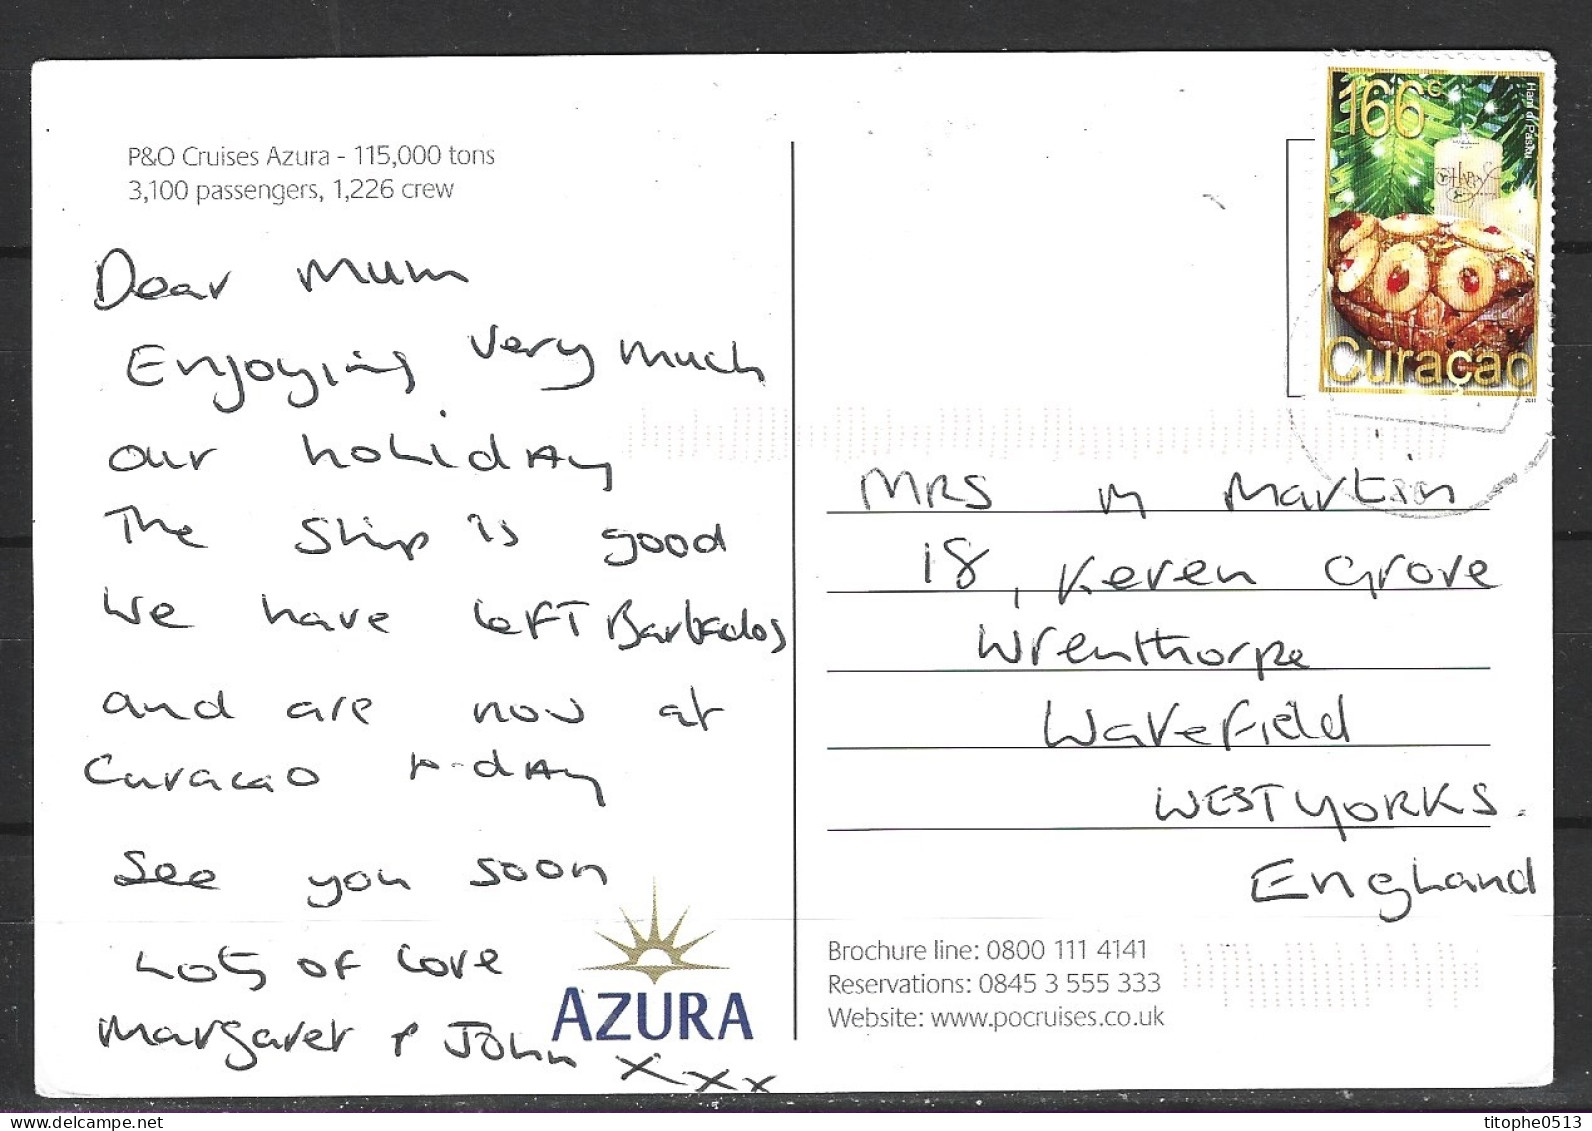 P&O Cruises Azura - 115,000 tons
3,100 passengers, 1,226 crew
Dear Mum
Enjoying very much
our holiday
The ship is good
We have left Barbados
and are now at
Curacao to-day
See you soon
Lots of love
Margaret & John xxx
AZURA
166c
Ham di Pasku
Happy
Curaçao
2011
MRS M Martin
18, Keren Grove
Wrenthorpe
Wakefield
WEST YORKS.
England
Brochure line: 0800 111 4141
Reservations: 0845 3 555 333
Website: www.pocruises.co.uk
titophe0513